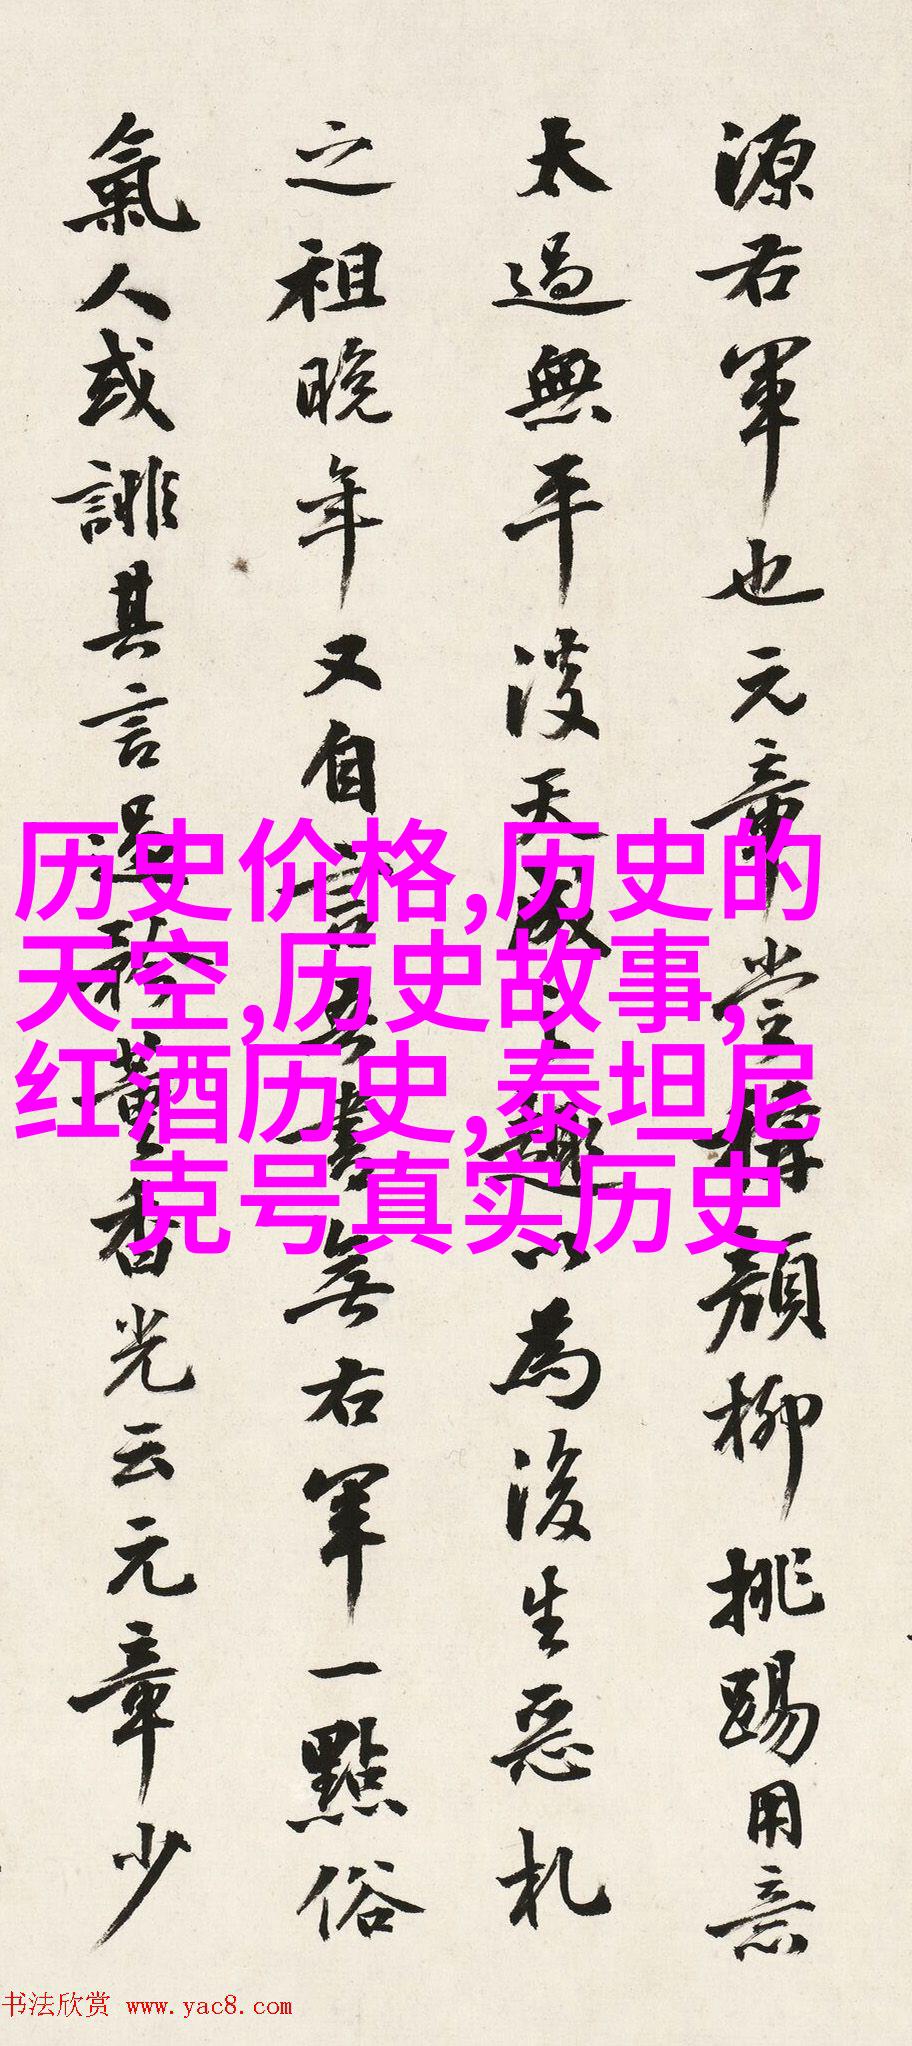 源右軍也元章嘗顏柳挑踢用意
太過無平淡天成之趣以為後生惡札
之祖晚年又自言吾書無右軍一點俗
氣人或誹其言過矜董香光云元章少
历史价格,历史的
天空,历史故事,
红酒历史,泰坦尼
克号真实历史
书法欣赏 www.yac8.com